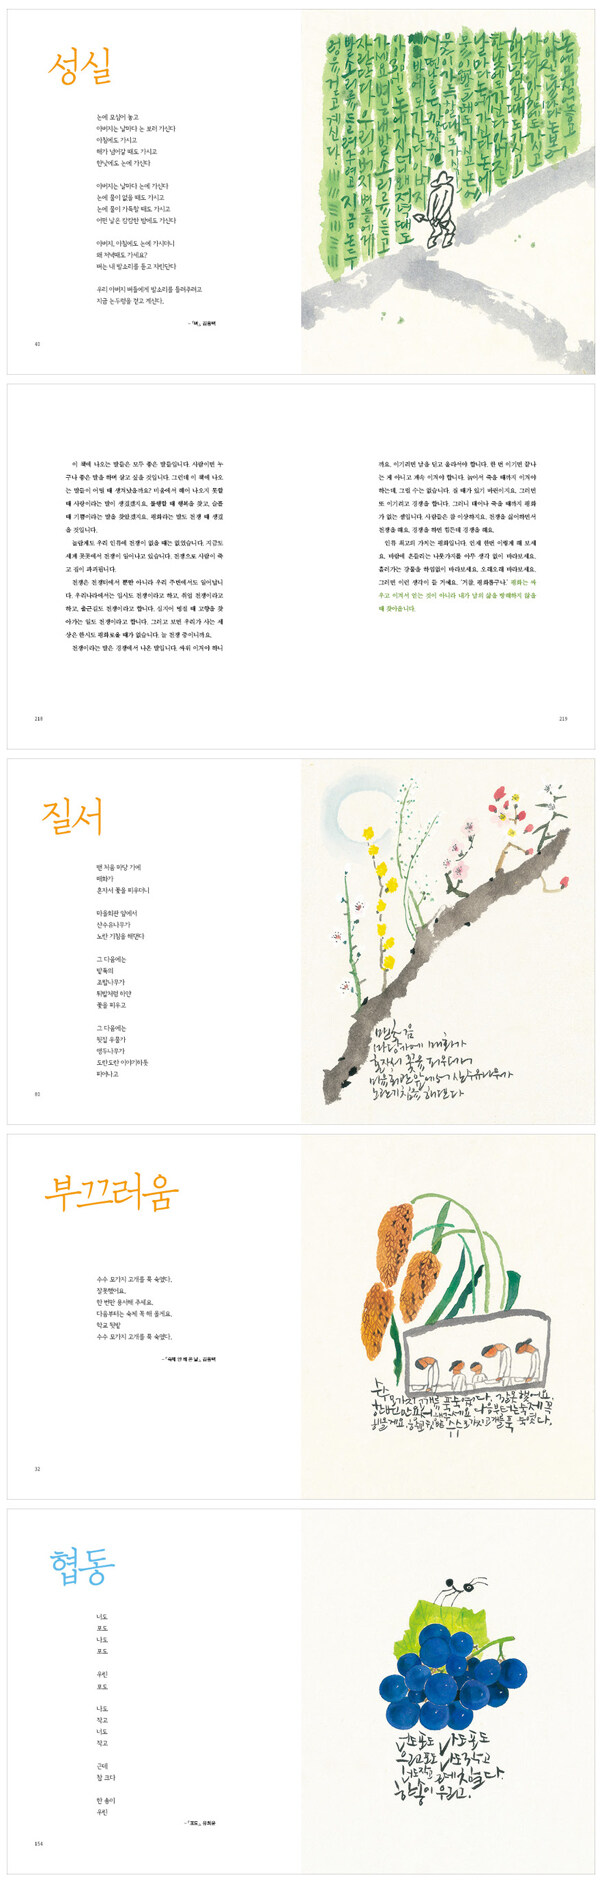 성실
논에 모심어 놓고
아버지는 날마다 논 보러 가신다
아침에도 가시고
해가 넘어갈 때도 가시고
한낮에도 논에 가신다
아버지는 날마다 논에 가신다
논에 물이 없을 때도 가시고
논에 물이 가득할 때도 가시고
어떤 날은 캄캄한 밤에도 가신다
아버지, 아침에도 논에 가시더니
왜 저녁때도 가세요?
벼는 내 발소리를 듣고 자란단다
우리 아버지 벼들에게 발소리를 들려주려고
지금 논두렁을 걷고 계신다.
-「벼」, 김용택
이 책에 나오는 말들은 모두 좋은 말들입니다. 사람이면 누
구나 좋은 말을 하며 살고 싶을 것입니다. 그런데 이 책에 나오
는 말들이 어떨 때 생겨났을까요? 미움에서 헤어 나오지 못할
때 사랑이라는 말이 생겼겠지요. 불행할 때 행복을 찾고, 슬플
때 기쁨이라는 말을 찾았겠지요. 평화라는 말도 전쟁 때 생겼
을 것입니다.
놀랍게도 우리 인류에 전쟁이 없을 때는 없었습니다. 지금도
세계 곳곳에서 전쟁이 일어나고 있습니다. 전쟁으로 사람이 죽
고 집이 파괴됩니다.
전쟁은 전쟁터에서 뿐만 아니라 우리 주변에서도 일어납니
다. 우리나라에서는 입시도 전쟁이라고 하고, 취업 전쟁이라고
하고, 출근길도 전쟁이라고 합니다. 심지어 명절 때 고향을 찾
아가는 일도 전쟁이라고 합니다. 그러고 보면 우리가 사는 세
상은 한시도 평화로울 때가 없습니다. 늘 전쟁 중이니까요.
전쟁이라는 말은 경쟁에서 나온 말입니다. 싸워 이겨야 하니
218
까요. 이기려면 남을 딛고 올라서야 합니다. 한 번 이기면 끝나
는 게 아니고 계속 이겨야 합니다. 늙어서 죽을 때까지 이겨야
하는데, 그럴 수는 없습니다. 질 때가 있기 마련이지요. 그러면
또 이기려고 경쟁을 합니다. 그러니 태어나 죽을 때까지 평화
가 없는 셈입니다. 사람들은 참 이상하지요. 전쟁을 싫어하면서
전쟁을 해요. 경쟁을 하면 힘든데 경쟁을 해요.
인류 최고의 가치는 평화입니다. 언제 한번 이렇게 해 보세
요. 바람에 흔들리는 나뭇가지를 아무 생각 없이 바라보세요.
흘러가는 강물을 하염없이 바라보세요. 오래오래 바라보세요.
그러면 이런 생각이 들 거예요. ‘거참, 평화롭구나.’ 평화는 싸
우고 이겨서 얻는 것이 아니라 내가 남의 삶을 방해하지 않을
때 찾아옵니다.
219
질서
맨 처음 마당 가에
매화가
혼자서 꽃을 피우더니
마을회관 앞에서
산수유나무가
노란 기침을 해댄다
그 다음에는
밭둑의
조팝나무가
튀밥처럼 하얀
꽃을 피우고
그 다음에는
뒷집 우물가
앵두나무가
도란도란 이야기하듯
피어나고
맨 처음
마당가에 매화가
혼자서 꽃을 피우더니
마을회관 앞에서 산수유나무가
노란기침을 해댄다
부끄러움
수수 모가지 고개를 푹 숙였다.
잘못했어요.
한 번만 용서해 주세요.
다음부터는 숙제 꼭 해 올게요.
학교 뒷밭
수수 모가지 고개를 푹 숙였다.
-「숙제 안 해 온 날」, 김용택
32
협동
너도
포도
나도
포도
우린
포도
나도
작고
너도
작고
근데
참 크다
한 송이
우린
-「포도」, 유희윤
154
너도포도 나도포도